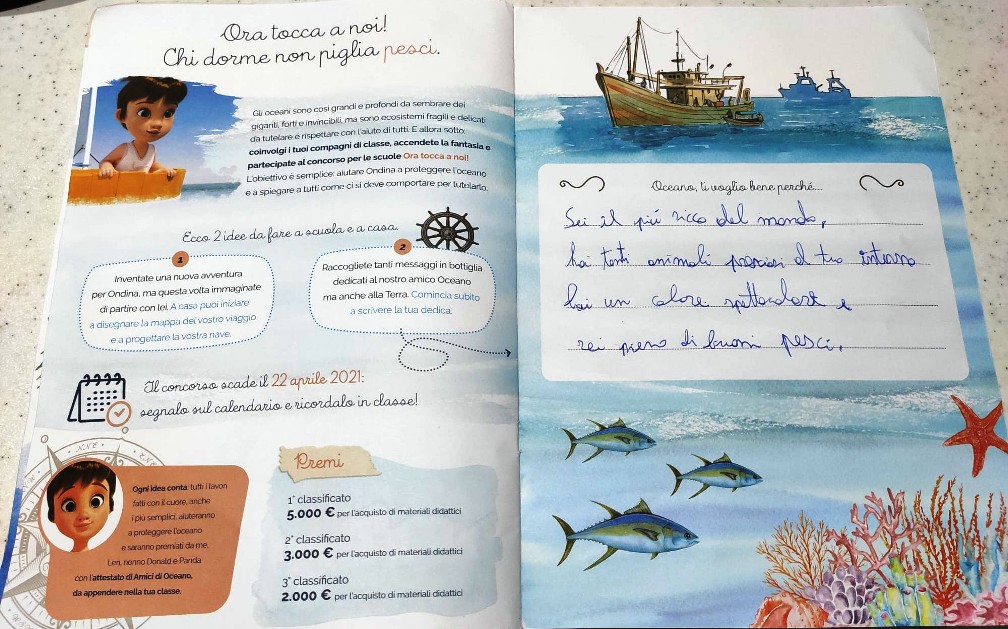 Ora tocca a noi!
Chi dorme non piglia pesci.
Gli oceani sono così grandi e profondi da sembrare dei
giganti, forti e invincibili, ma sono ecosistemi fragili e delicati
da tutelare e rispettare con l'aiuto di tutti. E allora sotto:
coinvolgi i tuoi compagni di classe, accendete la fantasia e
partecipate al concorso per le scuole Ora tocca a noi!
L'obiettivo è semplice: aiutare Ondina a proteggere l'oceano
e a spiegare a tutti come ci si deve comportare per tutelarlo.
Ecco 2 idee da fare a scuola e a casa.
1
Inventate una nuova avventura
per Ondina, ma questa volta immaginate
di partire con lei. A casa puoi iniziare
a disegnare la mappa del vostro viaggio
e a progettare la vostra nave.
2
Raccogliete tanti messaggi in bottiglia
dedicati al nostro amico Oceano
ma anche alla Terra. Comincia subito
a scrivere la tua dedica.
Il concorso scade il 22 aprile 2021:
segnalo sul calendario e ricordalo in classe!
NNE
Ogni idea conta: tutti i lavori
fatti con il cuore, anche
i più semplici, aiuteranno
a proteggere l'oceano
e saranno premiati da me,
Leri, nonno Donald e Panda
con l'attestato di Amici di Oceano,
da appendere nella tua classe.
Premi
1° classificato
5.000 € per l'acquisto di materiali didattici
2° classificato
3.000 € per l'acquisto di materiali didattici
3° classificato
2.000 € per l'acquisto di materiali didattici
Oceano, ti voglio bene perché...
Sei il più ricco del mondo,
hai tanti animali preziosi al tuo interno
hai un colore spettacolare e
sei pieno di buoni pesci.